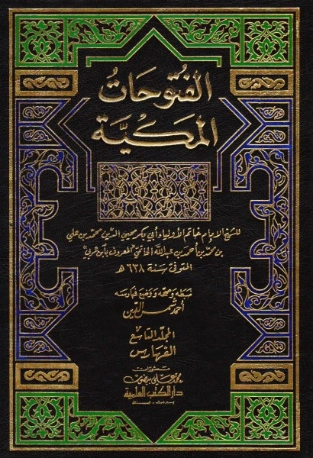 الفتوحات
المكية
للشيخ الإمام خاتم الأولياء أبي بكر محيي الدين محمد بن علي
بن محمد بن أحمد بن عبدالله الحاتمي المعروف بابن عربي
المتوفى سنة ٦٣٨ هـ
ضبطه وصححه ووضع فهارسه
أحمد شمس الدين
المجلد التاسع
الفهارس
منشورات
محمد علي بيضون
دار الكتب العلمية